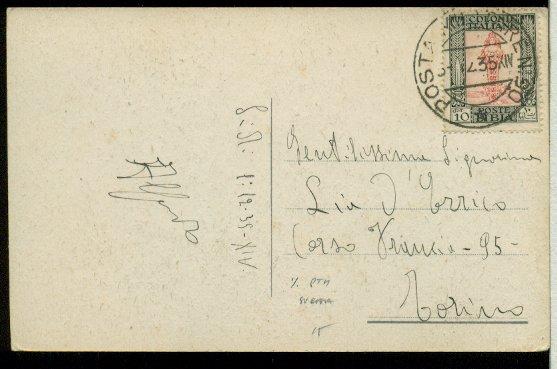 COLONIE
ITALIANE
POSTA MILITARE N.
.12.35 XIV
10 POSTE
LIBIA
1:12.35-XIV.
Gentilissima Signorina
Lia D'Errico
Corso Francia - 95 -
Torino
15